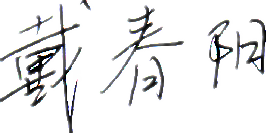 戴春阳